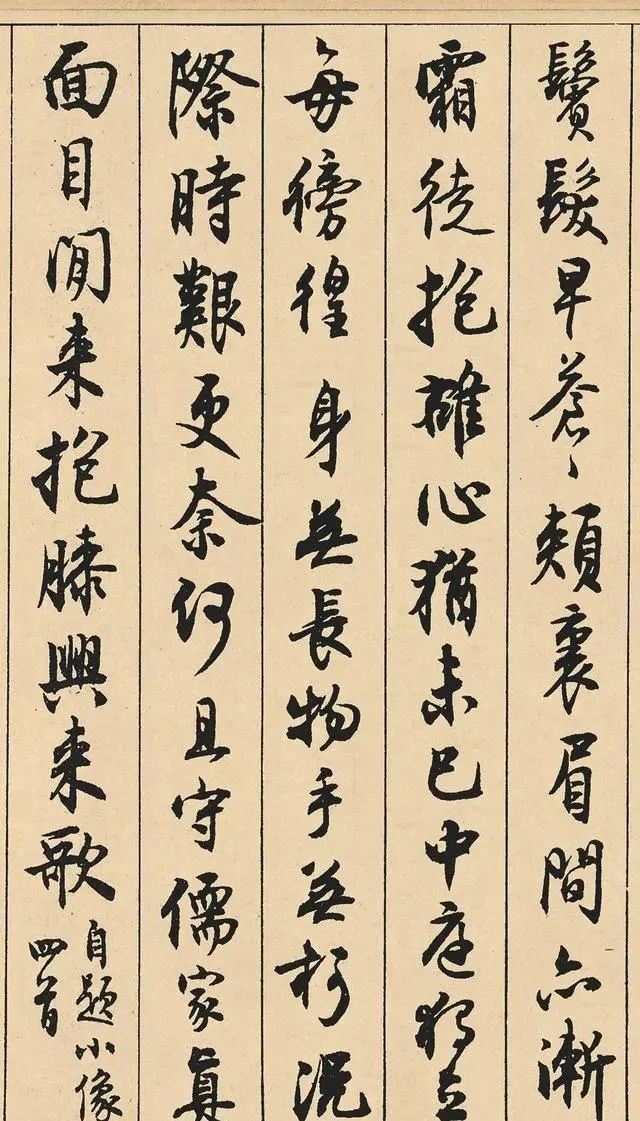 鬢髮早蒼〻頰裏眉間亦漸
霜徒抱雄心猶未已中庭獨立
每徬徨 身無長物手無柯況
際時艱更奈何且守儒家真
面目閒來抱膝興來歌
自題小像
四首